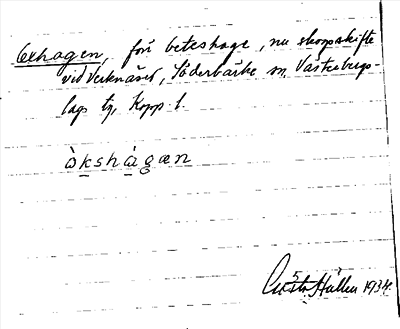 Oxhagen, förr beteshage, nu skogsskifte
vid Verknäred, Söderbärke sn, Västerbergs-
lags tg, Kopp. l.
òkshàgæn
Gösta Hallen 1934.